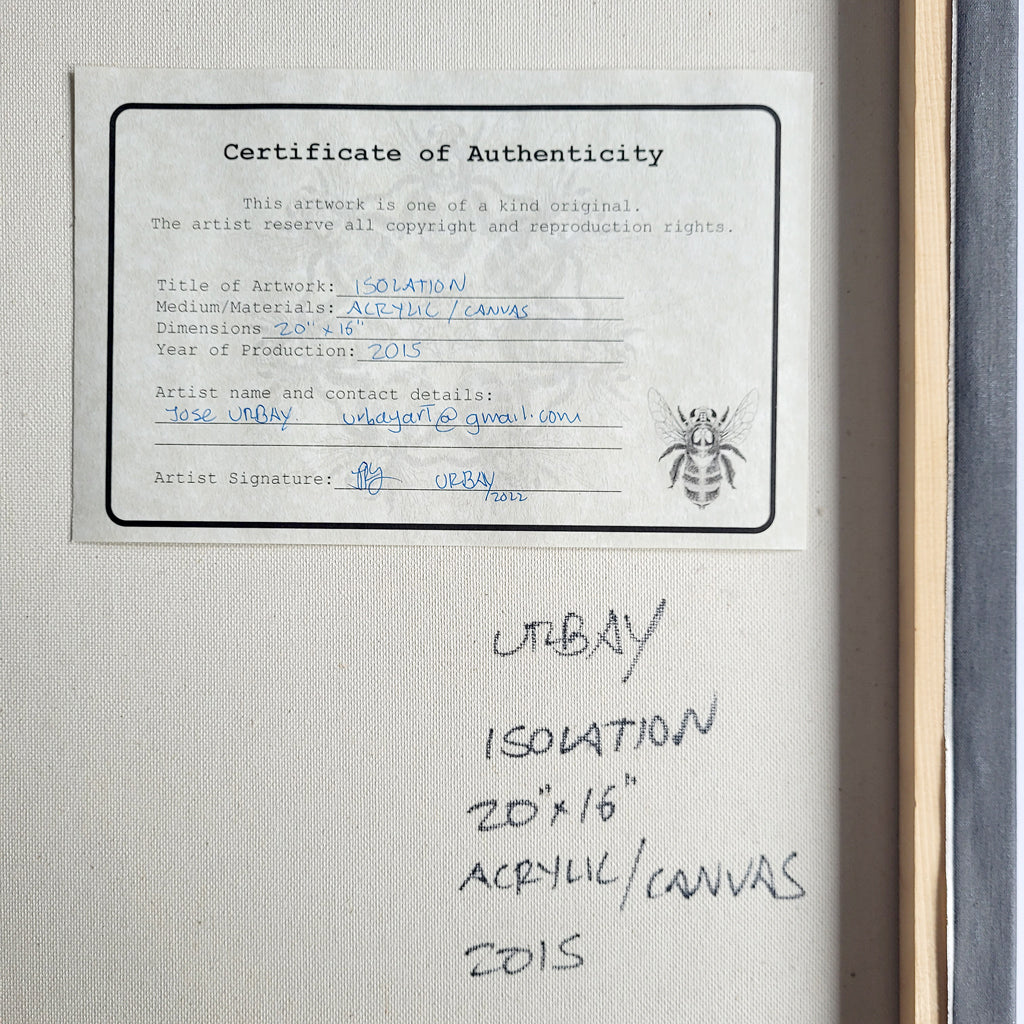 Certificate of Authenticity
This artwork is one of a kind original.
The artist reserve all copyright and reproduction rights.
Title of Artwork: ISOLATION
Medium/Materials: ACRYLIC / CANVAS
Dimensions 20" x 16"
Year of Production: 2015
Artist name and contact details:
JOSE URBAY. urbayart@gmail.com
Artist Signature: URBAY
/2022
URBAY
ISOLATION
20" x 16"
ACRYLIC/CANVAS
2015